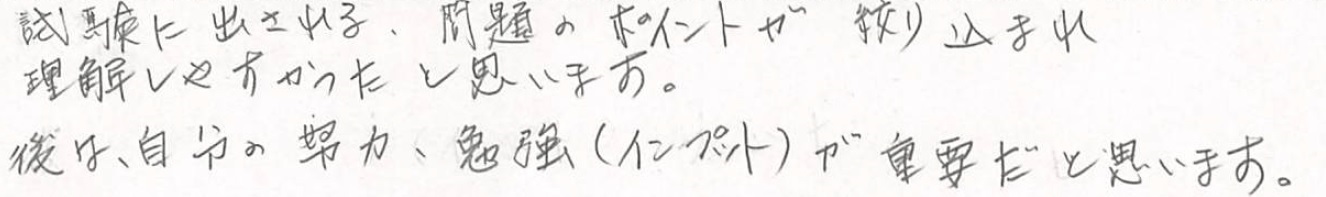 試験に出される、問題のポイントが絞り込まれ
理解しやすかったと思います。
後は、自分の努力、勉強(インプット)が重要だと思います。